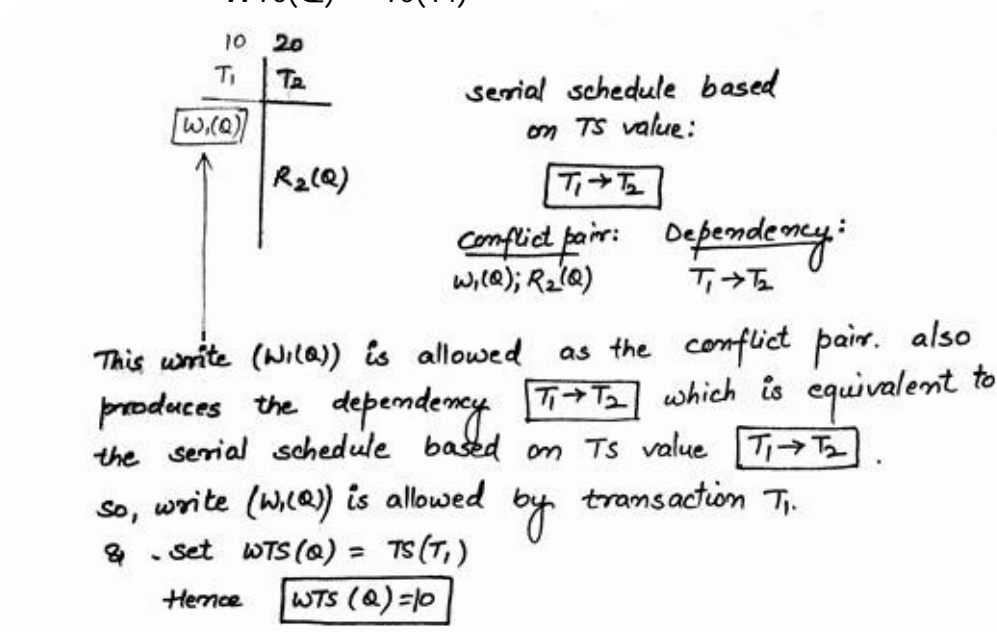 10 20
T₁ T₂
W₁(Q)
R₂(Q)
serial schedule based
on TS value:
T₁ → T₂
Conflict pair: Dependency:
W₁(Q); R₂(Q) T₁ → T₂
This write (W₁(Q)) is allowed as the conflict pair. also
produces the dependency T₁ → T₂ which is equivalent to
the serial schedule based on TS value T₁ → T₂.
so, write (W₁(Q)) is allowed by transaction T₁.
& . set WTS(Q) = TS(T₁)
Hence WTS (Q) = 10